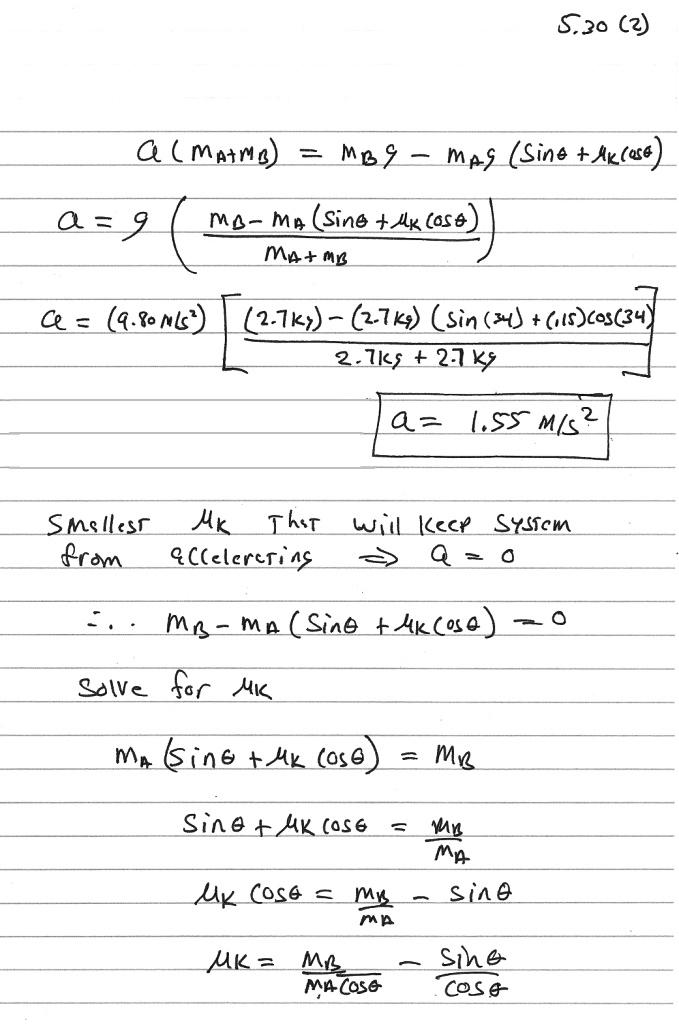 5.30 (2)
a (mA+mB) = mB g - mA g (sinθ + μk cosθ)
a = g ( mB - mA (sinθ + μk cosθ) / mA + mB )
a = (9.80 m/s²) [ (2.7kg) - (2.7 kg) (sin (34) + (.15)cos(34) / 2.7kg + 2.7 kg ]
a = 1.55 m/s²
Smallest μk That will keep system
from accelerating ⇒ a = 0
∴ mB - mA (sinθ + μk cosθ) = 0
Solve for μk
mA (sinθ + μk cosθ) = mB
sinθ + μk cosθ = mB / mA
μk cosθ = mB / mA - sinθ
μk = mB / mA cosθ - sinθ / cosθ